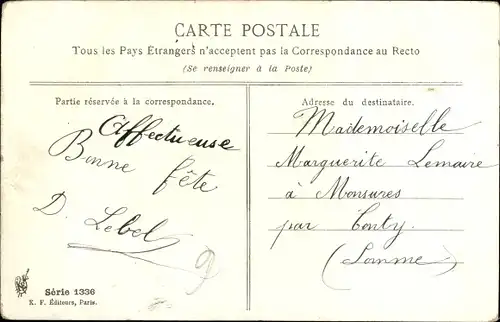 CARTE POSTALE
Tous les Pays Étrangers n'acceptent pas la Correspondance au Recto
(Se renseigner à la Poste)
Partie réservée à la correspondance.
Affectueuse
Bonne fête
D. Lebel
Série 1336
K. F. Éditeurs, Paris.
Adresse du destinataire.
Mademoiselle
Marguerite Lemaire
à Monsures
par Conty
(Somme)